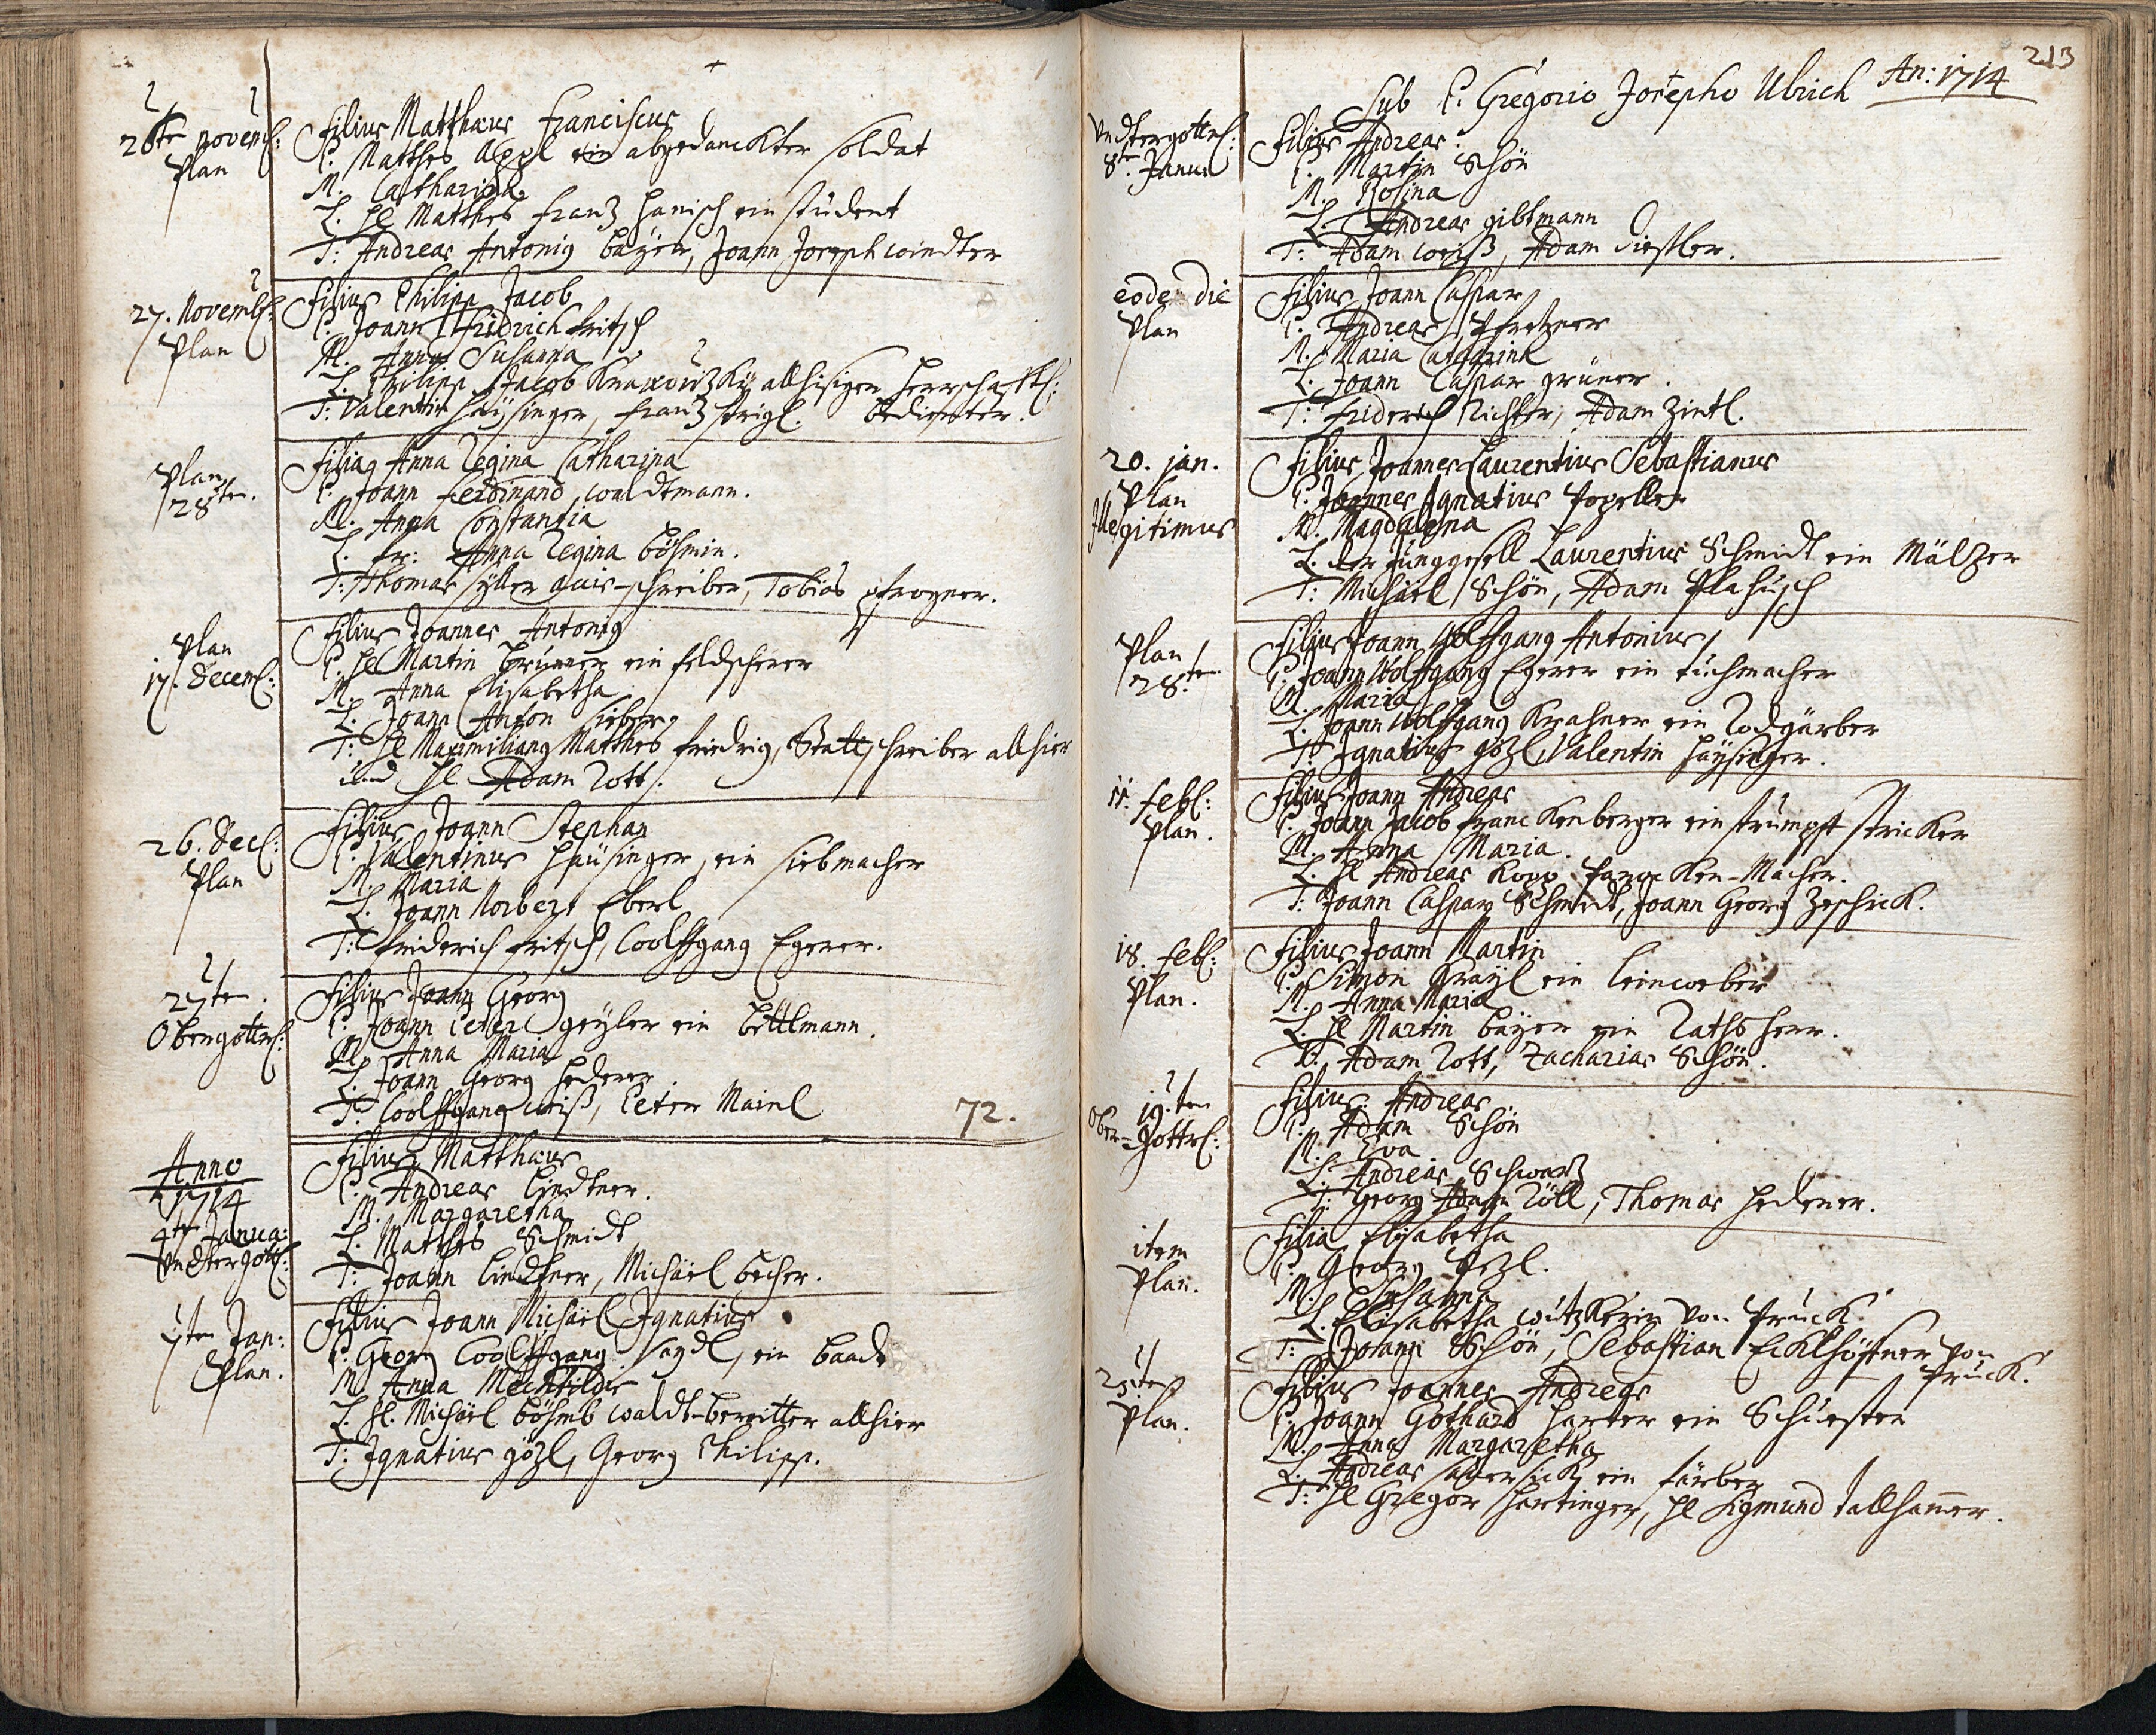 26te novemb:
Plan
Filius Matthæus Franciscus
P. Matthes Appl ein abgedanckter soldat
M. Catharina
L. H: Matthes Frantz Hanisch ein student
T: Andreas Antonig Bayer, Joann Joseph Windter
27. Novemb:
Plan
Filius Philipp Jacob
P. Joann Fridrich Fritsch
M. Anna Susanna
L. Philipp Jacob allhisigen Herrschafftl:
T: Valentin Haysinger, Frantz Strigl. Bedienter.
Plan
28ten.
Filia Anna Regina Catharina
P. Joann Ferdinand Waldtmann.
M. Anna Constantia
L. Fr: Anna Regina Böhmin.
T: Thomas schreiber, Tobias
Plan
17. Decemb:
Filius Joannes Antonig
P. H: Martin Brunner ein feldscherer
M. Anna Elisabetha
L. Joann Anton Sieber
T: H: Maximiliang Matthes Fridrig, Stattschreiber allhier
und H: Adam Rott.
26. Dec:
Plan
Filius Joann Stephan
P. Valentinus Haüsinger, ein siebmacher
M. Maria
L. Joann Norbert Eberl
T: Friderich Fritsch, Wolffgang Egerer.
27ten.
Obergottr:
Filius Joann Georg
P. Joann Peter Geyler ein Bettlmann.
M. Anna Maria
L. Joann Georg Hederer
T: Wolffgang Weiß, Peter Mainl
72.
Anno
1714
4te Janua:
Undtergott:
Filius Matthæus
P. Andreas Lindtner.
M. Margaretha
L. Matthes Schmidt
T: Joann Lindtner, Michäel Becher.
7ten Jan:
Plan.
Filius Joann Michäel Ignatius
P. Georg Wolffgang Haydl, ein Baader
M. Anna Mechtildis
L. H: Michäel Böhmb Waldt-bereitter allhier
T: Ignatius Gözl, Georg Philipp.
213
Sub P. Gregorio Josepho Ulrich An: 1714
Undtergottr:
8te. Janua
Filius Andreas.
P. Martin Schön
M. Rosina
L. Andreas Gibtmann
T: Adam Weiß, Adam Distler.
eodem die
Plan
Filius Joann Caspar
P. Andreas Pfretzner
M. Maria Catharina
L. Joann Caspar Grüner.
T: Friderich Richter, Adam Zintl.
20. jan.
Plan
Illegitimus
Filius Joannes Laurentius Sebastianus
P. Joannes Ignatius Popeller
M. Magdalena
L. der Junggesell Laurentius Schmidt ein Mältzer
T: Michäel Schön, Adam Plahusch
Plan
28.ten
Filius Joann Wolffgang Antonius
P. Joann Wolffgang Egerer ein tuchmacher
M. Maria
L. Joann Wolffgang Krahner ein Rodgärber
T: Ignatius Gözl, Valentin Haysinger.
11. Feb:
Plan.
Filius Joann Andreas
P. Joann Jacob Franckenberger ein strumpff stricker
M. Anna Maria.
L. H: Andreas Kopp Paroccken-Macher.
T: Joann Caspar Schmidt, Joann Georg Zeschick.
18. Feb:
Plan.
Filius Joann Martin
P. Simon Grayl ein leinweber
M. Anna Maria
L. H: Martin Bayer ein Rathsherr.
T: Adam Rott, Zacharias Schön.
19.ten
Ober-Gottr:
Filius Andreas
P. Adam Schön
M. Eva
L. Andreas Schwartz
T: Georg Adam Röll, Thomas Hederer.
item
Plan.
Filia Elisabetha
P. Georg Pezl.
M. Susanna
L. Elisabetha Wutzkerin von Pruck.
T: Johann Schön, Sebastian Ecklhöffner von
Pruck.
25ten
Plan.
Filius Joannes Andreas
P. Joann Gothard Harter ein Schuester
M. Anna Margaretha
L. Andreas ein färber
T: H: Gregor Hartinger, H: Sigmund Tallhamer.